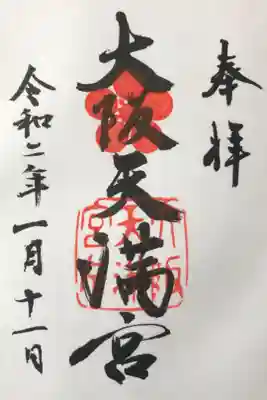 奉拝
大阪天満宮
令和二年一月十一日